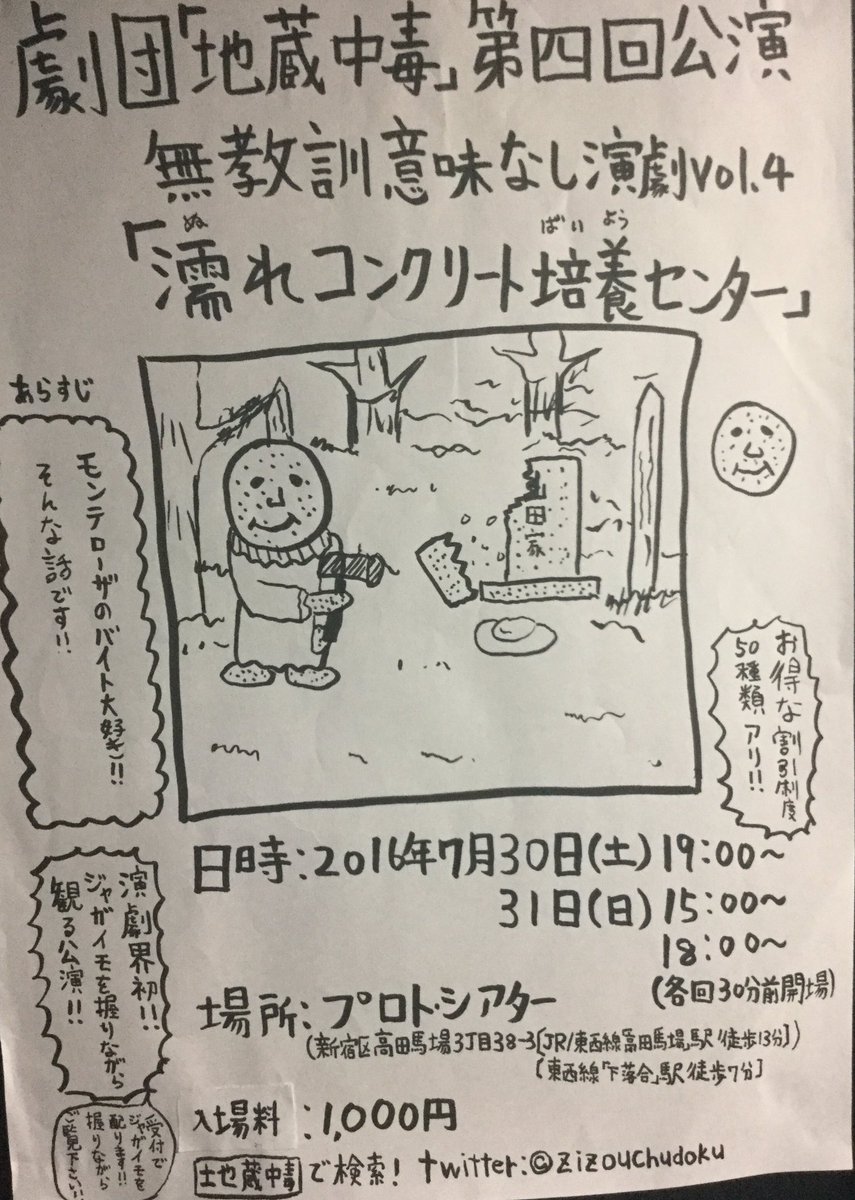 劇団「地蔵中毒」第四回公演
無教訓意味なし演劇vol.4
ぬ
ばいよう
「濡れコンクリート培養センター」
あらすじ
モンテローザのバイト大好き!!
そんな話です!!
山田家
お得な割引制度
50種類アリ!!
日時:2016年7月30日(土)19:00~
31日(日)15:00~
18:00~
(各回30分前開場)
演劇界初!!
ジャガイモを握りながら
観る公演!!
場所:プロト・シアター
(新宿区高田馬場3丁目38-3[JR/東西線「高田馬場」駅/徒歩13分])
[東西線「下落合」駅/徒歩7分]
受付で
ジャガイモを
配ります!!
握りながら
ご覧下さい!
入場料:1,000円
地蔵中毒で検索! twitter:@zizouchudoku